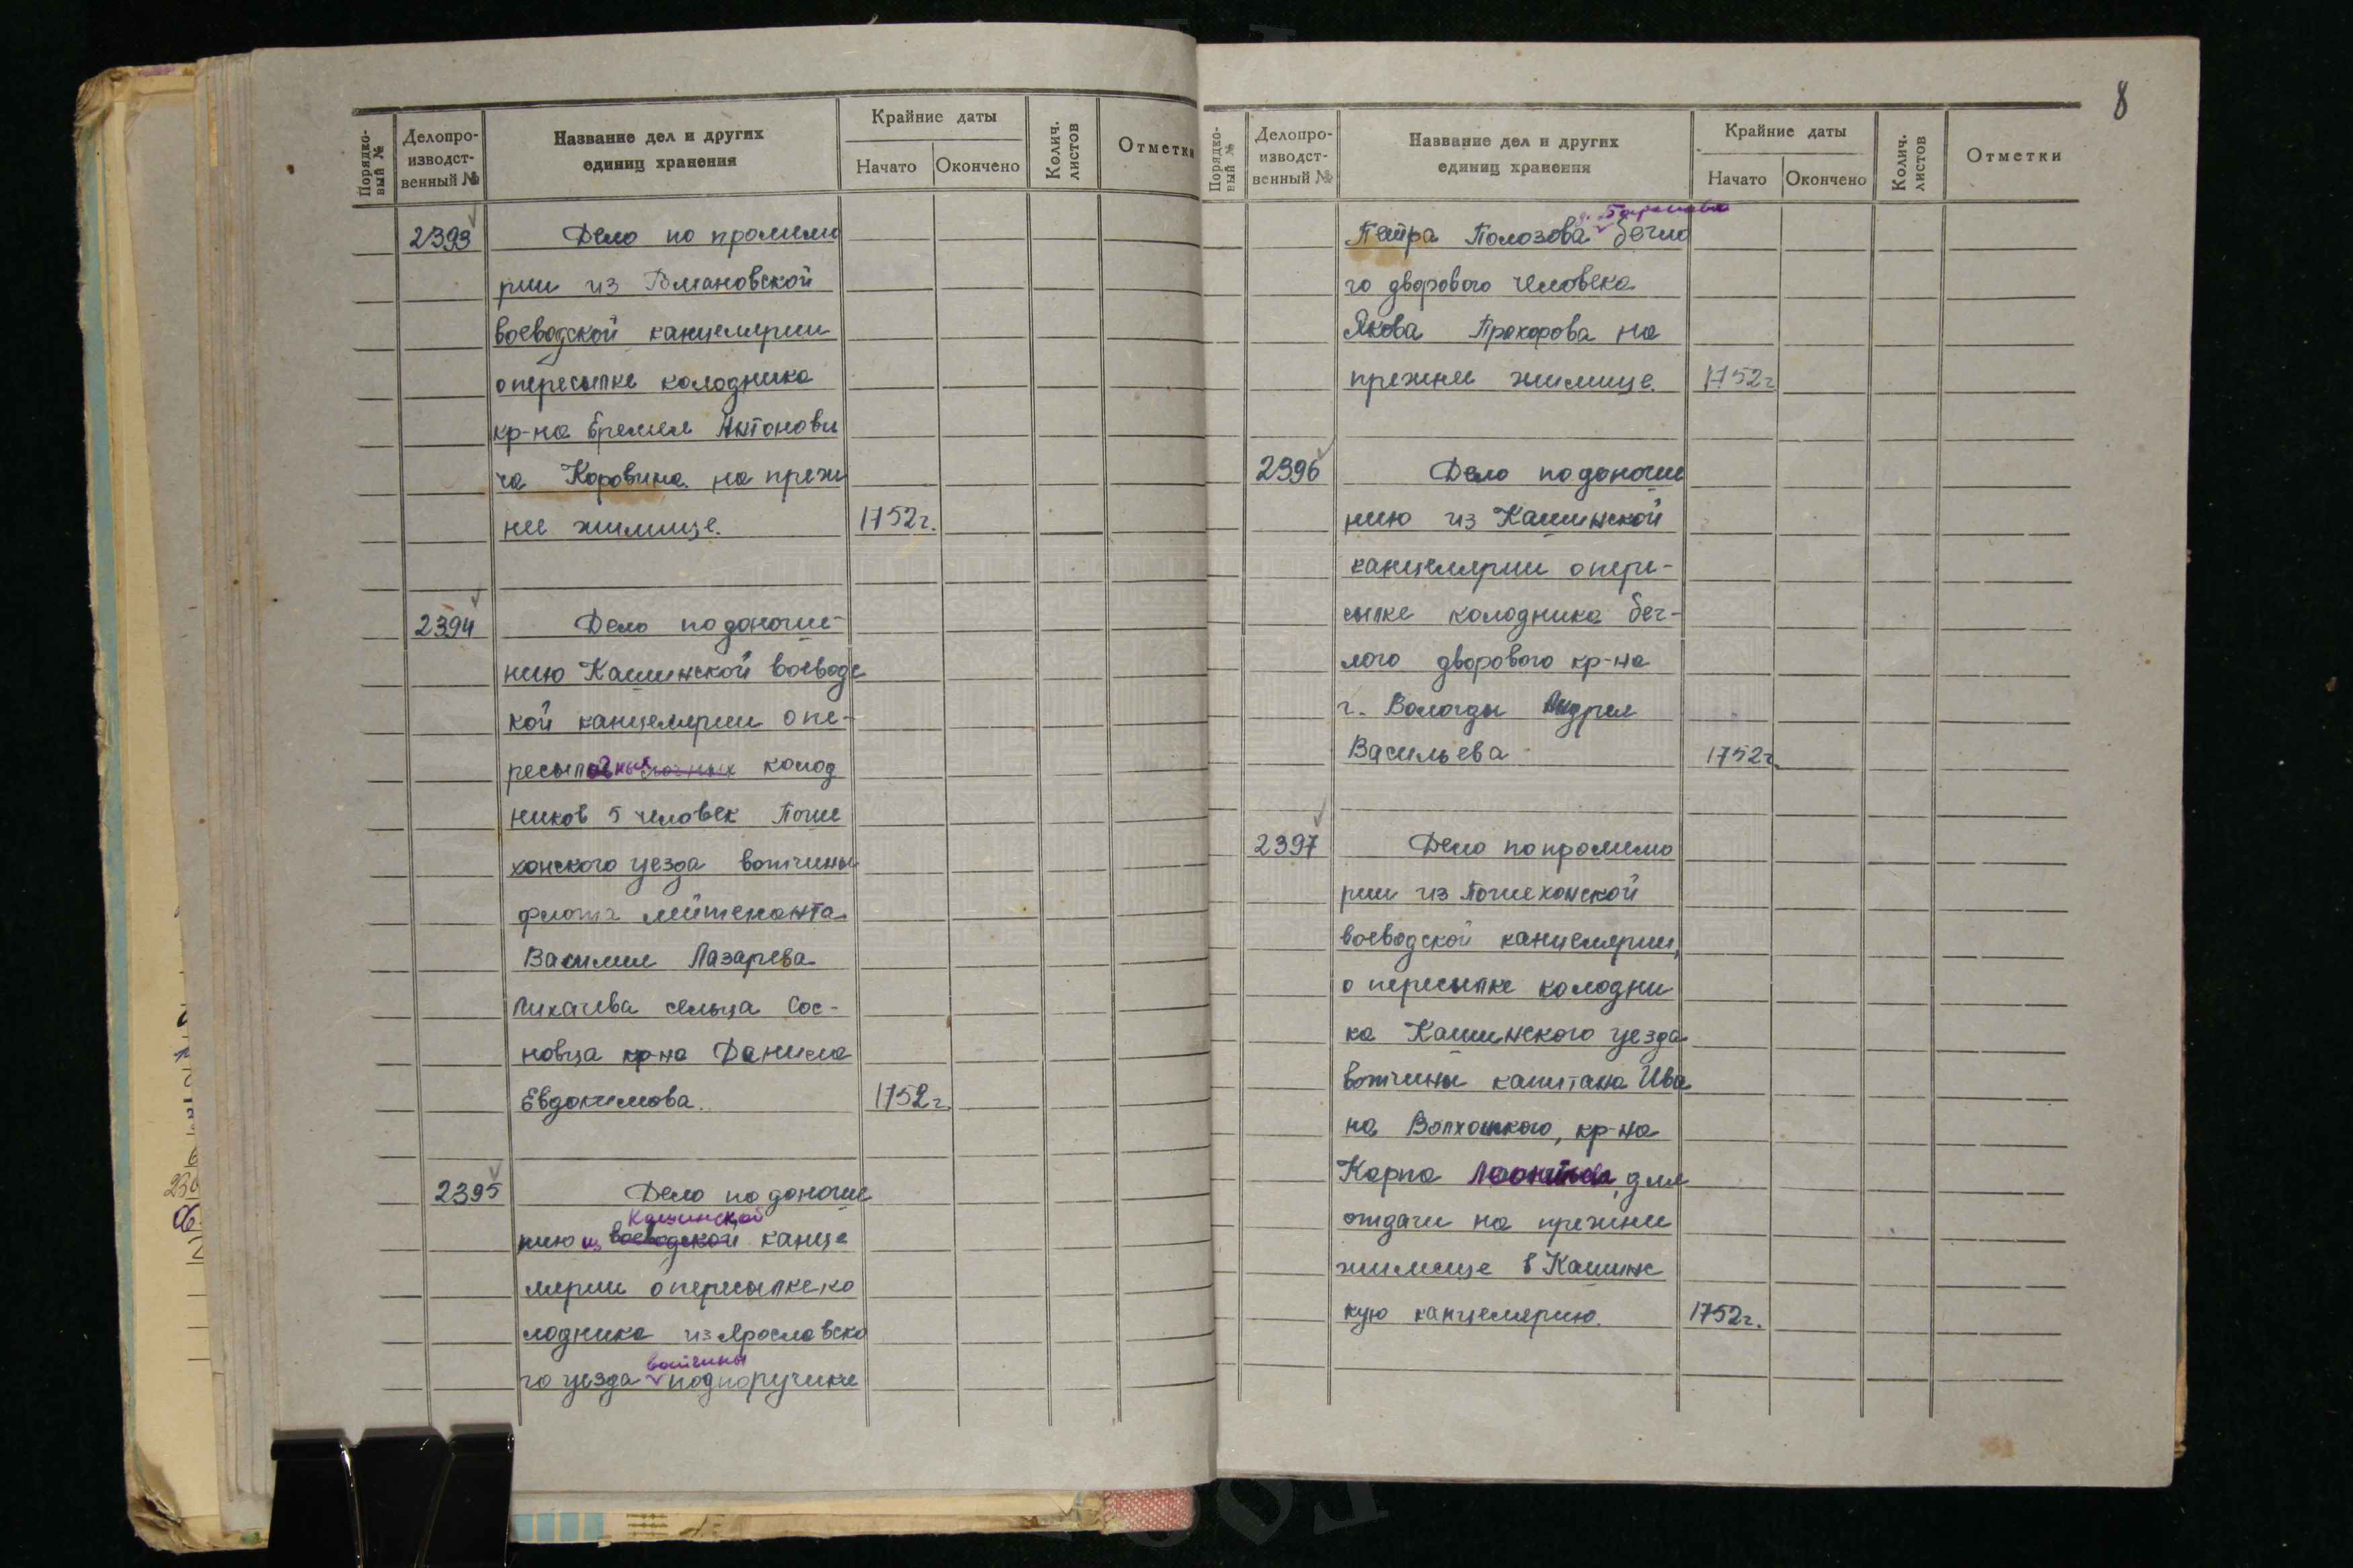 Порядко-
вый №
Делопро-
изводст-
венный №
Название дел и других
единиц хранения
Крайние даты
Начато
Окончено
Колич.
листов
Отметки
2393
Дело по промемо
рии из Романовской
воеводской канцелярии
о пересылке колодника
кр-на Еремея Антонови
ча Коровина на преж
нее жилище.
1752г.
2394
Дело по доноше-
нию Кашинской воеводс
кой канцелярии о пе-
ресылочных колод
ников 5 человек Поше
хонского уезда вотчины
флота лейтенанта
Василия Лазарева
Лихачева сельца Сос-
новца кр-на Данила
Евдокимова.
1752г.
2395
Дело по доноше
Кашинской
нию из воеводской канце
лярии о пересылке ко
лодника из Ярославско
вотчины
го уезда подпоручика
8
Порядко-
вый №
Делопро-
изводст-
венный №
Название дел и других
единиц хранения
Крайние даты
Начато
Окончено
Колич.
листов
Отметки
Петра Полозова бегло
го дворового человека
Якова Прохорова на
прежнее жилище.
1752г
2396
Дело по доноше
нию из Кашинской
канцелярии о пере-
сылке колодника бег-
лого дворового кр-на
г. Вологды Андрея
Васильева
1752г.
2397
Дело по промемо
рии из Пошехонской
воеводской канцелярии,
о пересылке колодни
ка Кашинского уезда
вотчины капитана Ива
на Волхонского, кр-на
Карпа Леонтьева, для
отдачи на прежнее
жилище в Кашинс
кую канцелярию.
1752г.